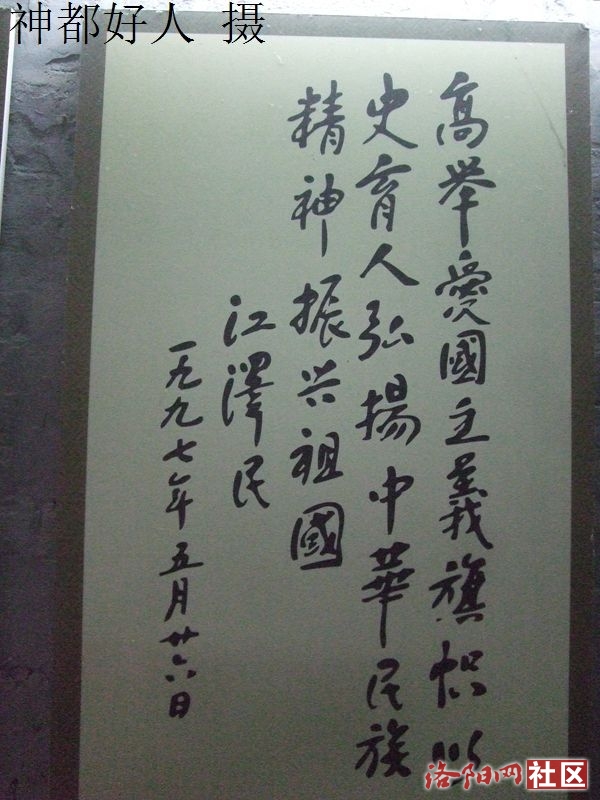 神都好人 摄
高举爱國主義旗帜以
史育人弘揚中華民族
精神振兴祖國
江澤民
一九九七年五月廿六日
洛阳网社区